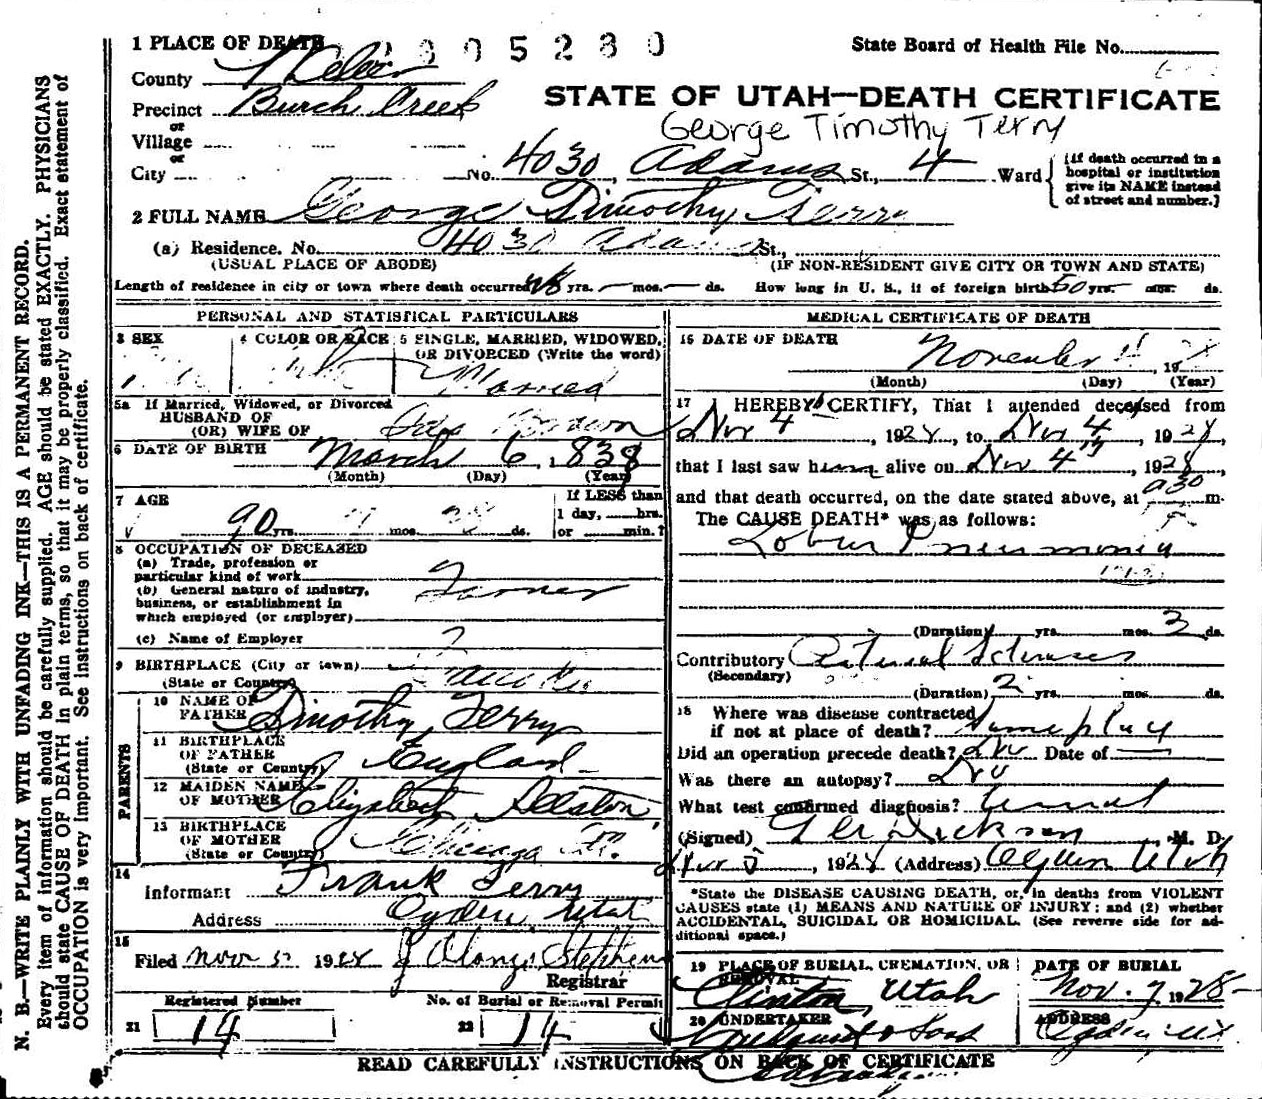 1 PLACE OF DEATH 2805230 State Board of Health File No.
County Weber
Precinct Burch Creek
STATE OF UTAH—DEATH CERTIFICATE
George Timothy Terry
or
Village
or
City No. 4030, Adams St., 4 Ward
(If death occurred in a
hospital or institution
give its NAME instead
of street and number.)
2 FULL NAME George Timothy Terry
(a) Residence. No. 4030 Adams St.,
(USUAL PLACE OF ABODE) (IF NON-RESIDENT GIVE CITY OR TOWN AND STATE)
Length of residence in city or town where death occurred yrs. — mos. — ds. How long in U. S., if of foreign birth 50 yrs. mos. ds.
PERSONAL AND STATISTICAL PARTICULARS
3 SEX 4 COLOR OR RACE 5 SINGLE, MARRIED, WIDOWED,
OR DIVORCED (Write the word)
Married
5a If Married, Widowed, or Divorced
HUSBAND OF
(OR) WIFE OF
6 DATE OF BIRTH March 6, 1838
(Month) (Day) (Year)
7 AGE 90 yrs. mos. ds.
If LESS than
1 day, hrs.
or min.?
8 OCCUPATION OF DECEASED
(a) Trade, profession or
particular kind of work
(b) General nature of industry,
business, or establishment in
which employed (or employer)
Farmer
(c) Name of Employer
9 BIRTHPLACE (City or town)
(State or Country)
PARENTS
10 NAME OF
FATHER Timothy Terry
11 BIRTHPLACE
OF FATHER
(State or Country) England
12 MAIDEN NAME
OF MOTHER Elizabeth
13 BIRTHPLACE
OF MOTHER
(State or Country) Chicago Ill.
14
Informant Frank Terry
Address Ogden, Utah
15
Filed Nov 5, 1928 J Alonzo Stephens
Registrar
Registered Number No. of Burial or Removal Permit
21 14 22 14
MEDICAL CERTIFICATE OF DEATH
16 DATE OF DEATH
November 4, 1928
(Month) (Day) (Year)
17 I HEREBY CERTIFY, That I attended deceased from
Nov 4, 1928, to Nov 4, 1928,
that I last saw him alive on Nov 4, 1928,
and that death occurred, on the date stated above, at 930 m.
The CAUSE DEATH* was as follows:
Lobar Pneumonia
(Duration) yrs. mos. 3 ds.
Contributory Arterial Sclerosis
(Secondary)
(Duration) 2 yrs. mos. ds.
18 Where was disease contracted
if not at place of death? Same place
Did an operation precede death? No Date of —
Was there an autopsy? No
What test confirmed diagnosis?
(Signed) Dickson, M. D.
Nov 5, 1928 (Address) Ogden Utah
*State the DISEASE CAUSING DEATH, or, in deaths from VIOLENT
CAUSES state (1) MEANS AND NATURE OF INJURY; and (2) whether
ACCIDENTAL, SUICIDAL OR HOMICIDAL. (See reverse side for ad-
ditional space.)
19 PLACE OF BURIAL, CREMATION, OR
REMOVAL
Clinton, Utah
DATE OF BURIAL
Nov. 7, 1928
20 UNDERTAKER
& Sons
ADDRESS
Ogden, Ut
READ CAREFULLY INSTRUCTIONS ON BACK OF CERTIFICATE
N. B.—WRITE PLAINLY WITH UNFADING INK—THIS IS A PERMANENT RECORD.
Every item of information should be carefully supplied. AGE should be stated EXACTLY. PHYSICIANS
should state CAUSE OF DEATH in plain terms, so that it may be properly classified. Exact statement of
OCCUPATION is very important. See instructions on back of certificate.